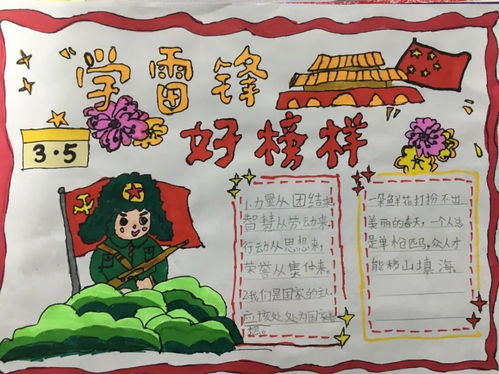 学雷锋
好榜样
3·5
1.力量从团结来,
智慧从劳动来,
行动从思想来,
荣誉从集体来。
2我们是国家的主人
应该处处为国家着
想。
一朵鲜花打扮不出
美丽的春天,一个人总
是单枪匹马,众人才
能移山填海。